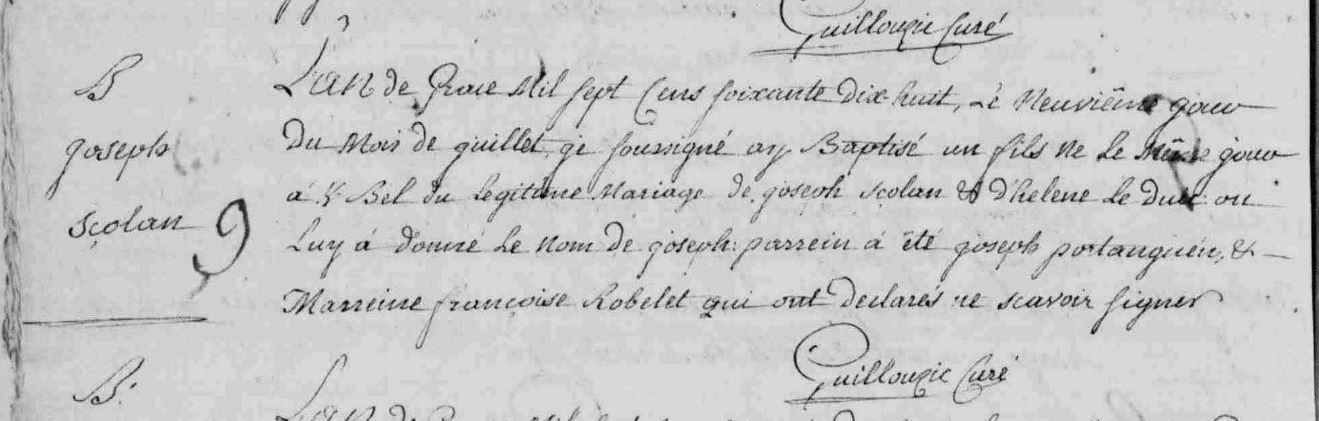 Guillouzic Curé
B
joseph
sçolan
9
L'an de Grace Mil sept Cens soixante dix-huit, Le Neuviême jour
du Mois de juillet, je soussigné ay Baptisé un fils Ne Le Même jour
à Bel du Legitime Mariage de joseph sçolan & d'helene Le Duic: on
Luy á donné Le Nom de joseph: parrein á êté joseph portanguén, &
Marreine françoise Robelet qui ont declarés ne scavoir signer
Guillouzic Curé
B.